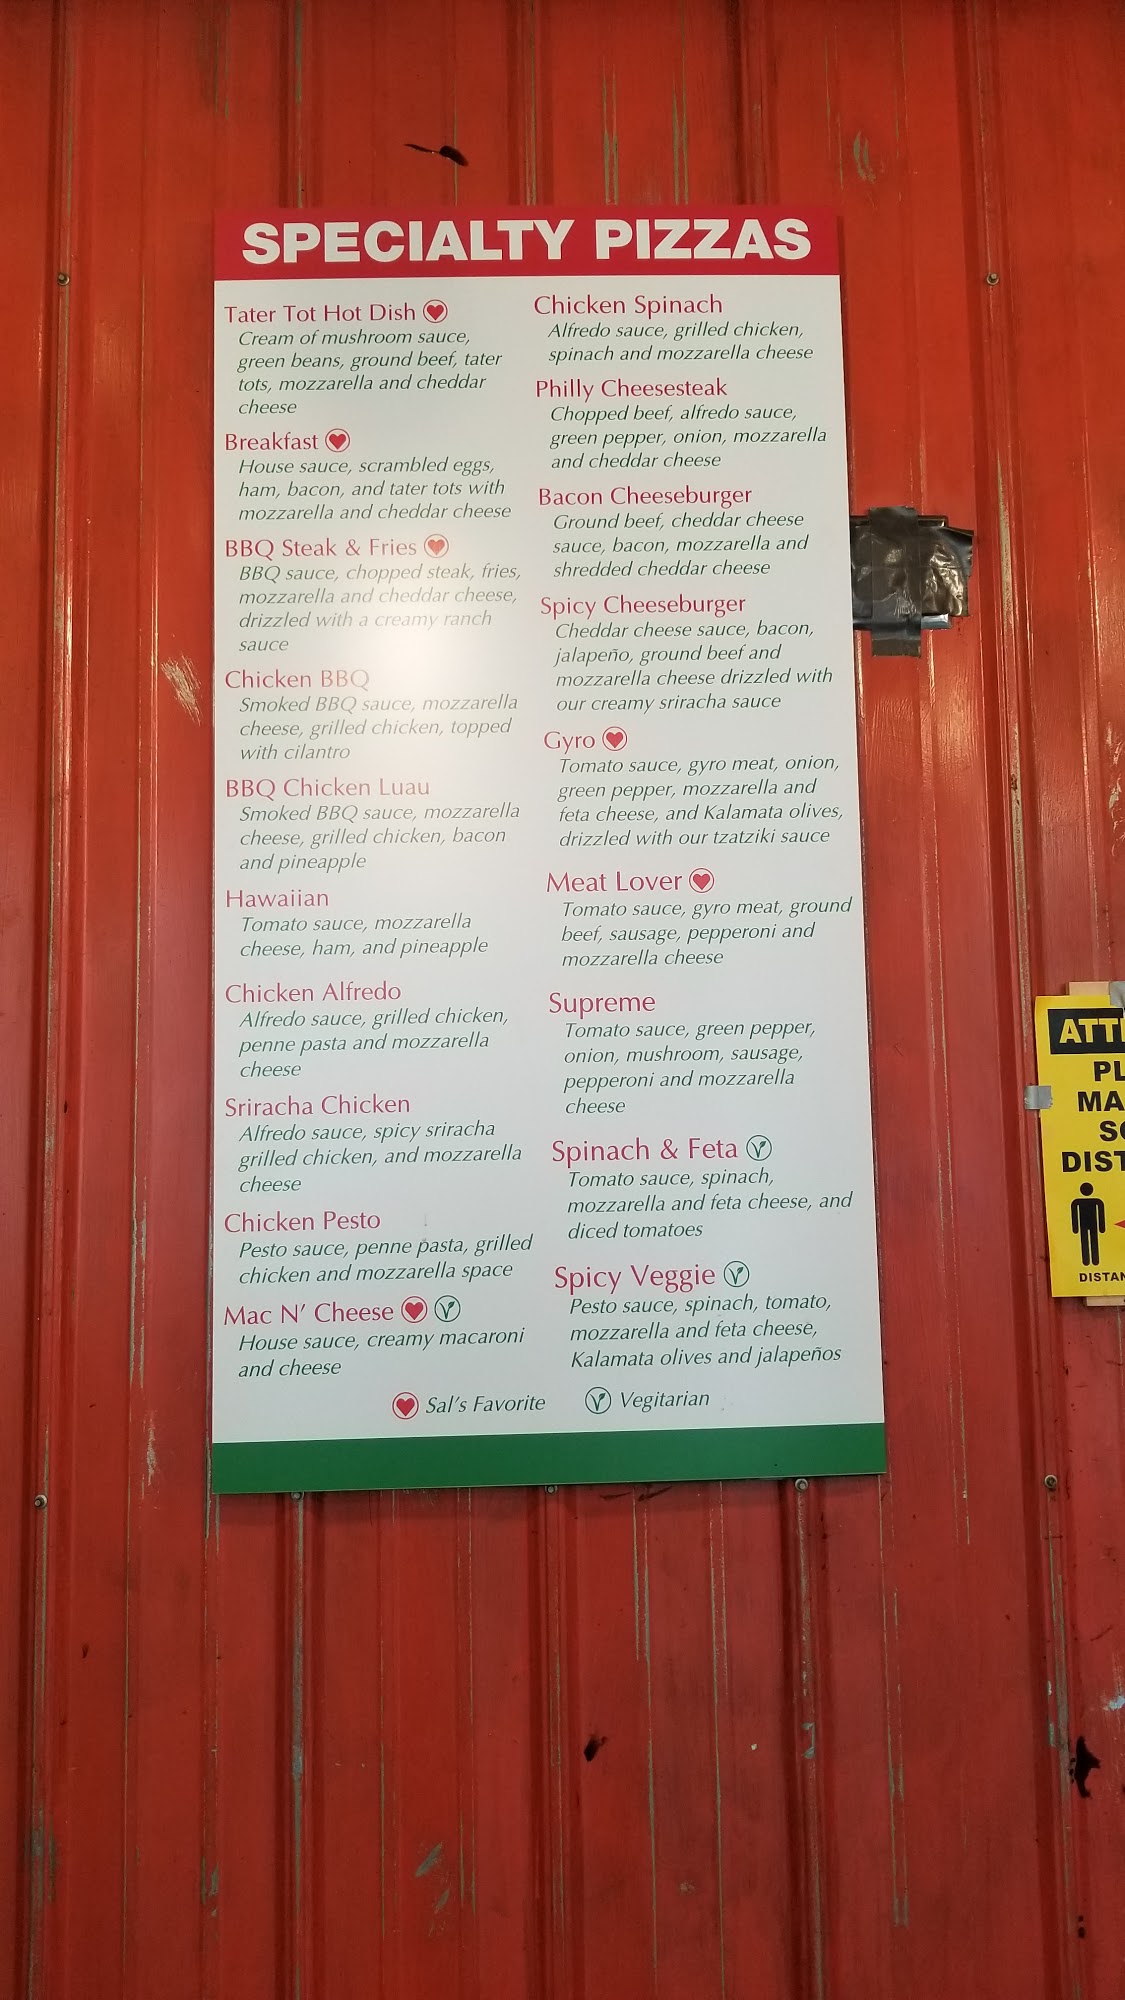 SPECIALTY PIZZAS
Tater Tot Hot Dish
Cream of mushroom sauce,
green beans, ground beef, tater
tots, mozzarella and cheddar
cheese
Breakfast
House sauce, scrambled eggs,
ham, bacon, and tater tots with
mozzarella and cheddar cheese
BBQ Steak & Fries
BBQ sauce, chopped steak, fries,
mozzarella and cheddar cheese,
drizzled with a creamy ranch
sauce
Chicken BBQ
Smoked BBQ sauce, mozzarella
cheese, grilled chicken, topped
with cilantro
BBQ Chicken Luau
Smoked BBQ sauce, mozzarella
cheese, grilled chicken, bacon
and pineapple
Hawaiian
Tomato sauce, mozzarella
cheese, ham, and pineapple
Chicken Alfredo
Alfredo sauce, grilled chicken,
penne pasta and mozzarella
cheese
Sriracha Chicken
Alfredo sauce, spicy sriracha
grilled chicken, and mozzarella
cheese
Chicken Pesto
Pesto sauce, penne pasta, grilled
chicken and mozzarella space
Mac N' Cheese
House sauce, creamy macaroni
and cheese
Chicken Spinach
Alfredo sauce, grilled chicken,
spinach and mozzarella cheese
Philly Cheesesteak
Chopped beef, alfredo sauce,
green pepper, onion, mozzarella
and cheddar cheese
Bacon Cheeseburger
Ground beef, cheddar cheese
sauce, bacon, mozzarella and
shredded cheddar cheese
Spicy Cheeseburger
Cheddar cheese sauce, bacon,
jalapeño, ground beef and
mozzarella cheese drizzled with
our creamy sriracha sauce
Gyro
Tomato sauce, gyro meat, onion,
green pepper, mozzarella and
feta cheese, and Kalamata olives,
drizzled with our tzatziki sauce
Meat Lover
Tomato sauce, gyro meat, ground
beef, sausage, pepperoni and
mozzarella cheese
Supreme
Tomato sauce, green pepper,
onion, mushroom, sausage,
pepperoni and mozzarella
cheese
Spinach & Feta
Tomato sauce, spinach,
mozzarella and feta cheese, and
diced tomatoes
Spicy Veggie
Pesto sauce, spinach, tomato,
mozzarella and feta cheese,
Kalamata olives and jalapeños
Sal's Favorite V Vegitarian
ATT
PL
MA
SO
DIST
DISTAN